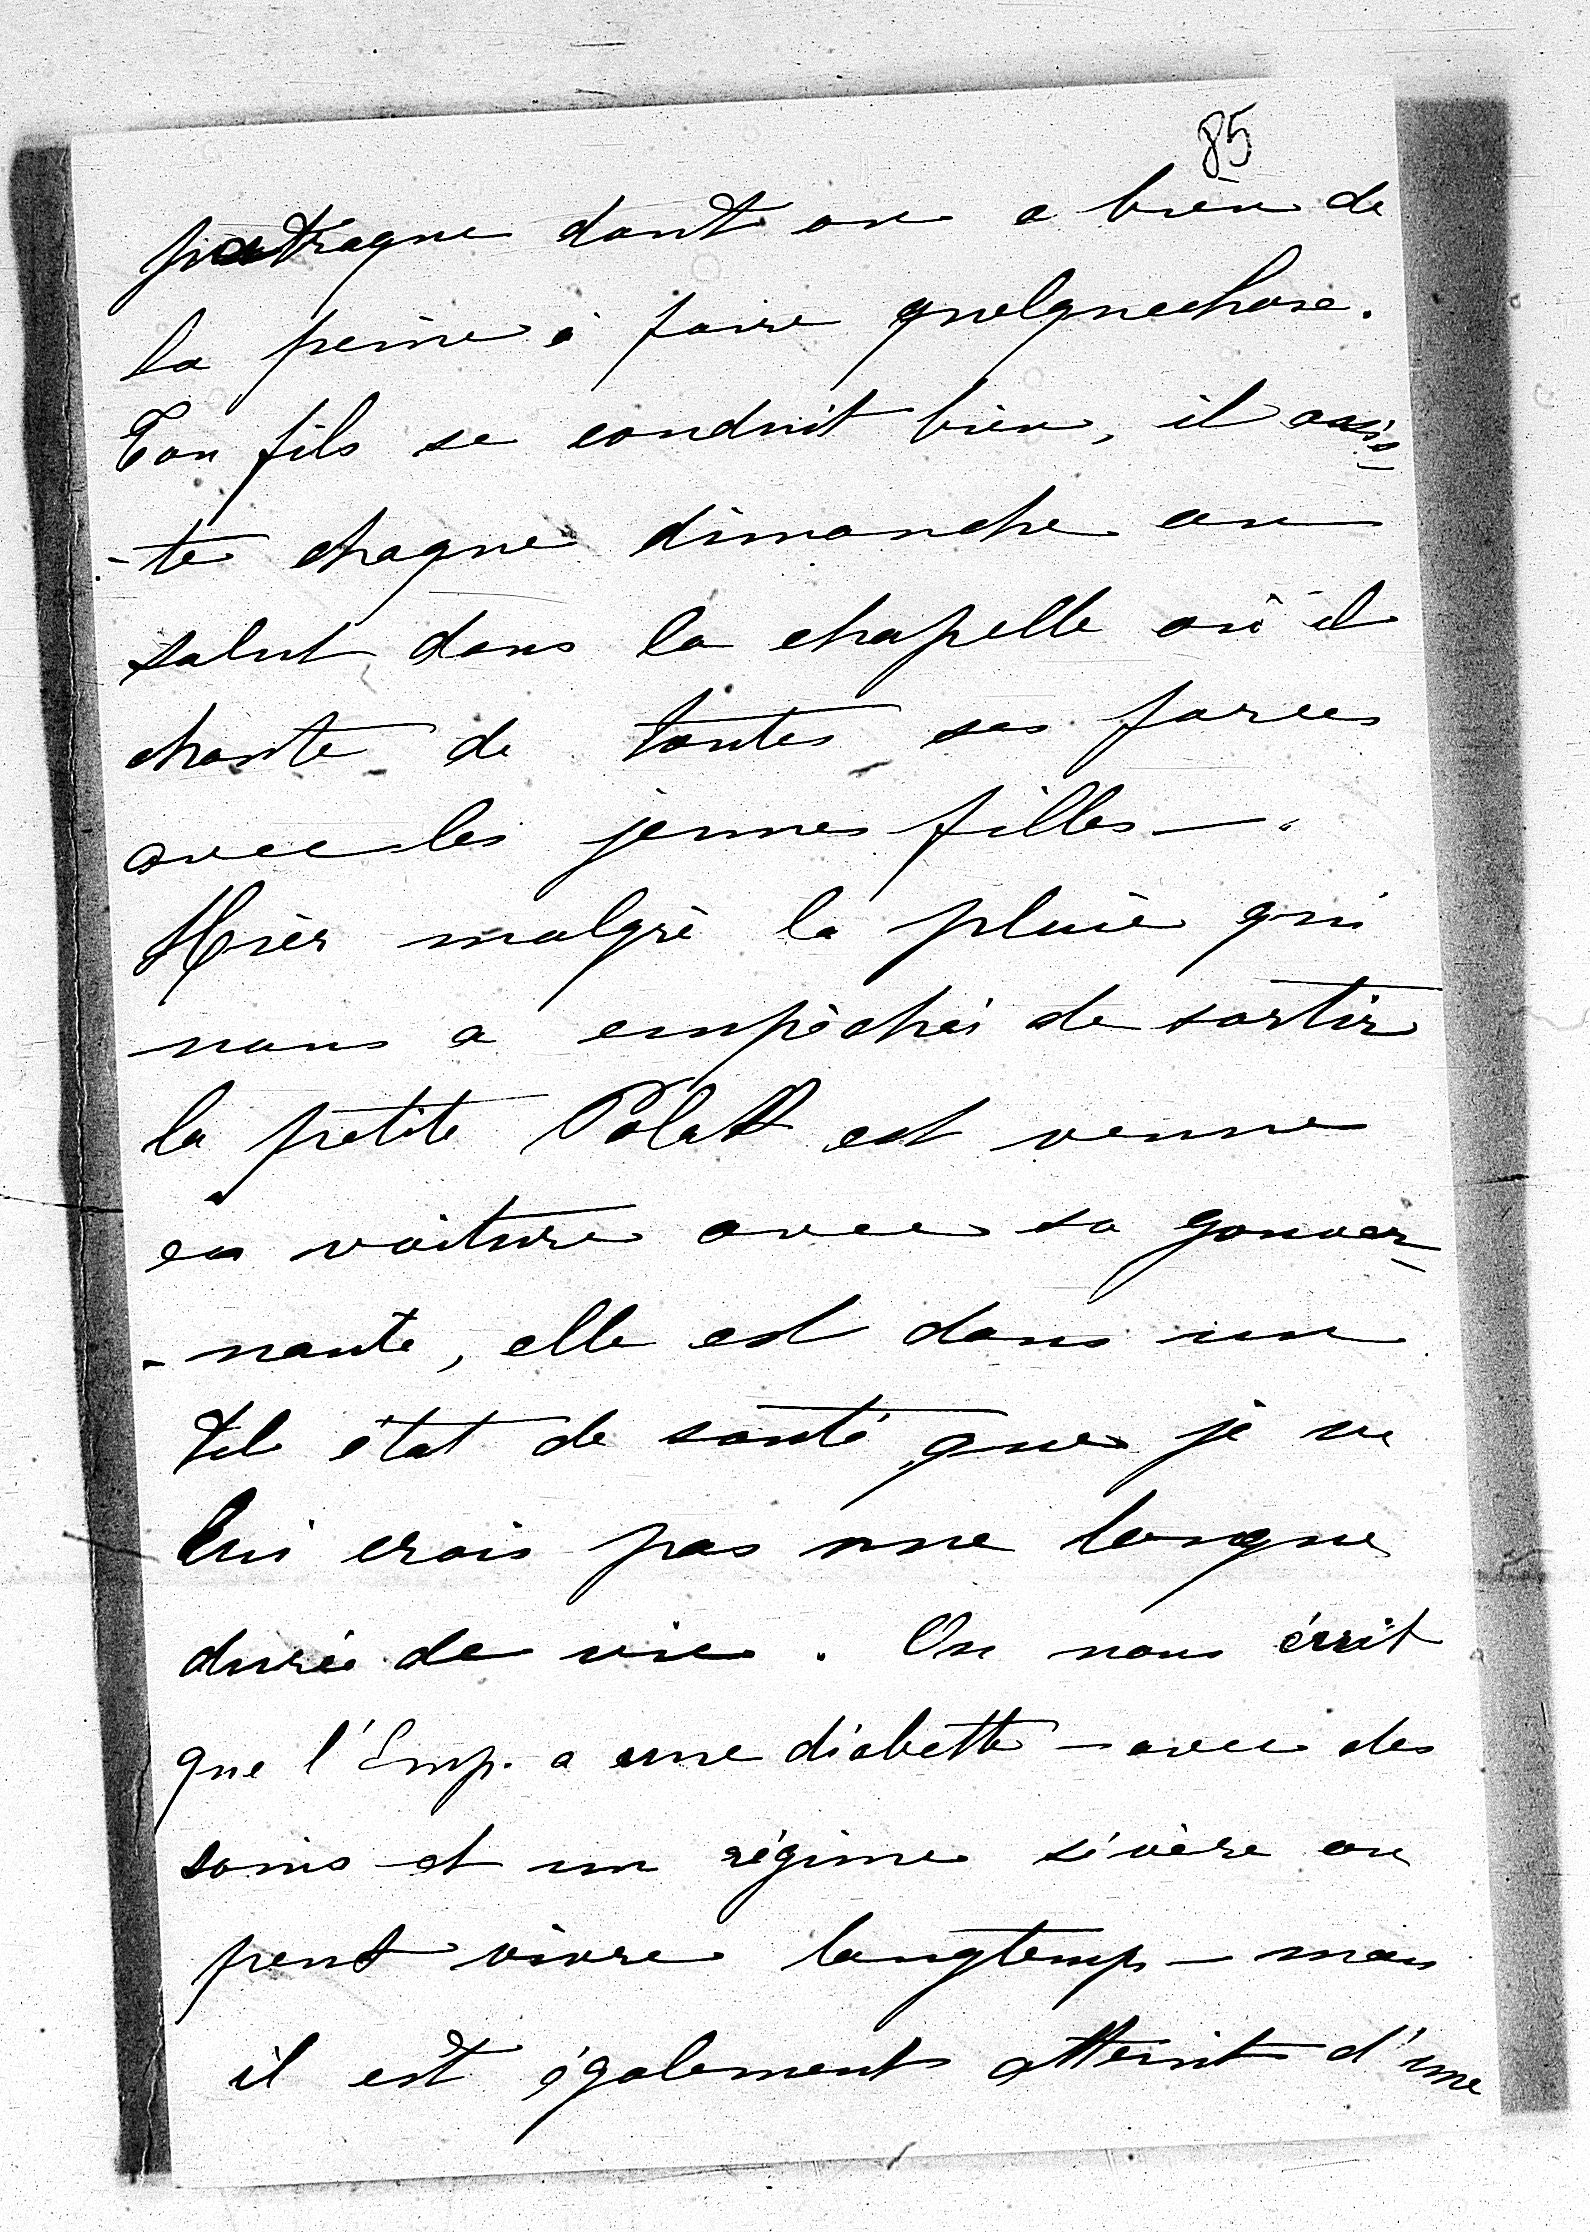 85
patragne dont on a bien de
la peine à faire quelquechose.
Ton fils se conduit bien, il assis-
-te chaque dimanche au
salut dans la chapelle où il
chante de toutes ses forces
avec les jeunes filles —.
Hier malgré la pluie qui
nous a empêchés de sortir
la petite Polatt est venue
en voiture avec sa gouver-
-nante, elle est dans un
tel état de santé que je ne
lui crois pas une longue
durée de vie. On nous écrit
que l'Emp. a une diabette — avec des
soins et un régime sévère on
peut vivre longtemps — mais
il est également atteint d'une